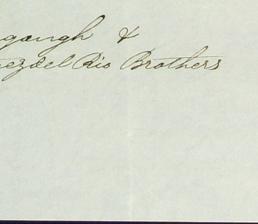 gangh &
ezdel Rio Brothers